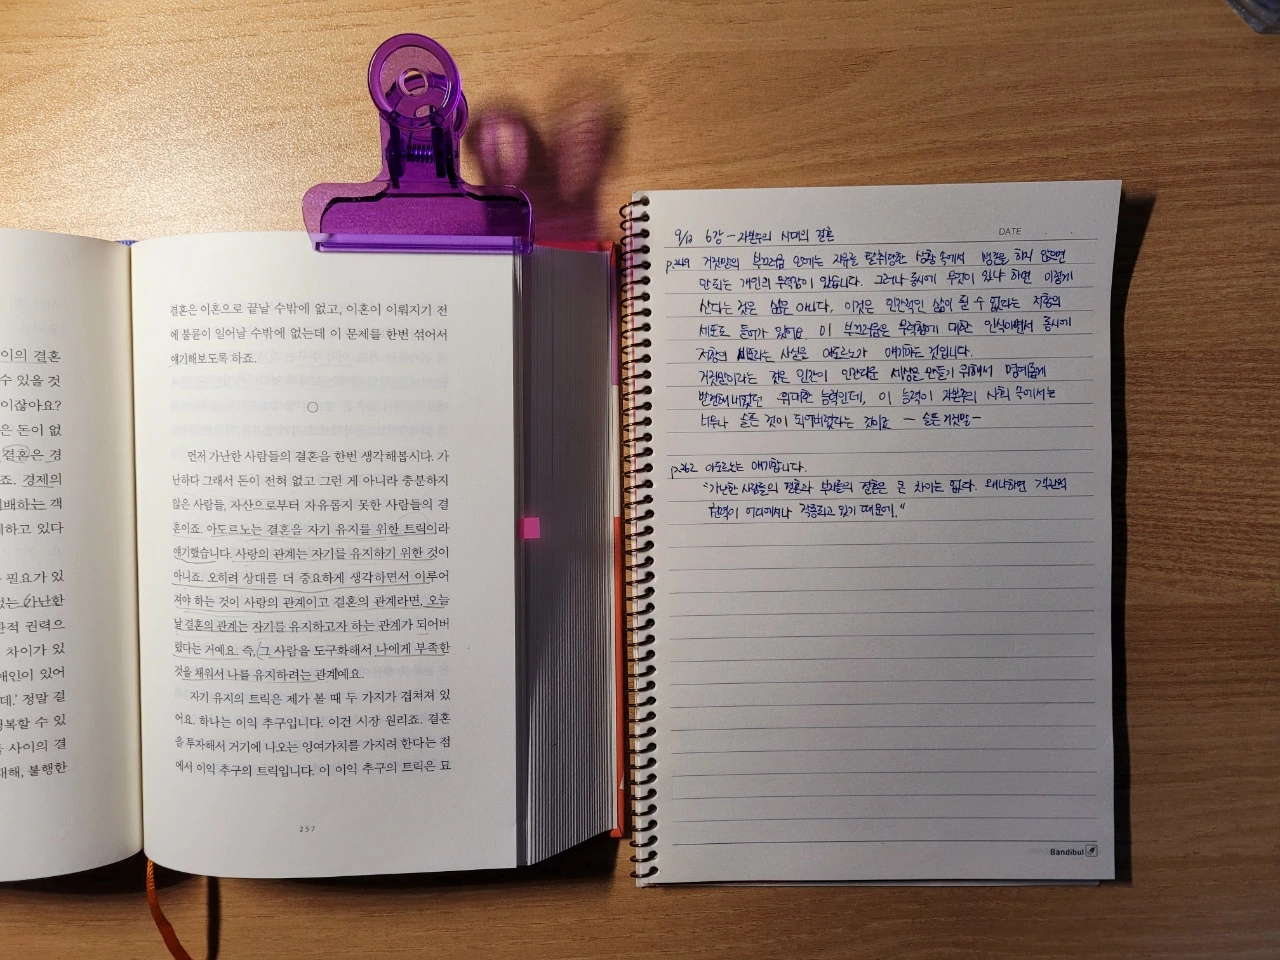 이의 결혼
수 있을 것
이잖아요?
은 돈이 없
결혼은 경
죠. 경제의
배하는 객
하고 있다
필요가 있
없는 가난한
관적 권력으
차이가 있
애인이 있어
데.' 정말 결
행복할 수 있
들 사이의 결
대해, 불행한
결혼은 이혼으로 끝날 수밖에 없고, 이혼이 이뤄지기 전
에 불륜이 일어날 수밖에 없는데 이 문제를 한번 섞어서
얘기해보도록 하죠.
먼저 가난한 사람들의 결혼을 한번 생각해봅시다. 가
난하다 그래서 돈이 전혀 없고 그런 게 아니라 충분하지
않은 사람들, 자산으로부터 자유롭지 못한 사람들의 결
혼이죠. 아도르노는 결혼을 자기 유지를 위한 트릭이라
얘기했습니다. 사랑의 관계는 자기를 유지하기 위한 것이
아니죠. 오히려 상대를 더 중요하게 생각하면서 이루어
져야 하는 것이 사랑의 관계이고 결혼의 관계라면, 오늘
날 결혼의 관계는 자기를 유지하고자 하는 관계가 되어버
렸다는 거예요. 즉, 그 사람을 도구화해서 나에게 부족한
것을 채워서 나를 유지하려는 관계예요.
자기 유지의 트릭은 제가 볼 때 두 가지가 겹쳐져 있
어요. 하나는 이익 추구입니다. 이건 시장 원리죠. 결혼
을 투자해서 거기에 나오는 잉여가치를 가지려 한다는 점
에서 이익 추구의 트릭입니다. 이 이익 추구의 트릭은 묘
257
DATE
9/12 6강 - 자본주의 시대의 결혼
p.249 거짓말의 부끄러움 안에는 자유를 탈취당한 상황 속에서 변론을 하지 않으면
안 되는 개인의 무력감이 있습니다. 그러나 동시에 무엇이 있냐 하면 이렇게
산다는 것은 삶은 아니다, 이것은 인간적인 삶이 될 수 없다는 저항의
세포도 들어가 있어요. 이 부끄러움은 무력함에 대한 인식이면서 동시에
저항의 세포라는 사실을 아도르노가 얘기하는 것입니다.
거짓말이라는 것은 인간이 인간다운 세상을 만들기 위해서 명예롭게
발견해내었던 위대한 능력인데, 이 능력이 자본주의 사회 속에서는
너무나 슬픈 것이 되어버렸다라는 것이죠 - 슬픈 거짓말 -
p.262 아도르노는 얘기합니다.
"가난한 사람들의 결혼과 부자들의 결혼은 큰 차이는 없다. 왜냐하면 객관적
권력이 어디에서나 적용되고 있기 때문에."
Bandibul